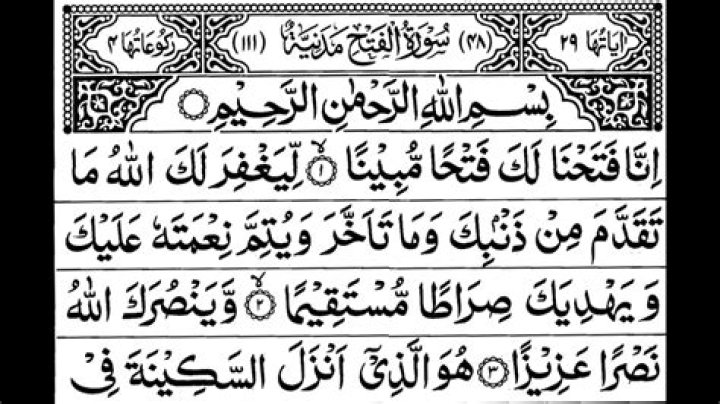 اٰیَاتُهَا ٢٩ (٤٨) سُوْرَةُ الْفَتْحِ مَدَنِیَّةٌ (١١١) رُكُوْعَاتُهَا ٤
بِسْمِ اللّٰهِ الرَّحْمٰنِ الرَّحِیْمِ
اِنَّا فَتَحْنَا لَكَ فَتْحًا مُّبِیْنًا ۙ‏﴿١﴾ لِّیَغْفِرَ لَكَ اللّٰهُ مَا
تَقَدَّمَ مِنْ ذَنْۢبِكَ وَمَا تَاَخَّرَ وَیُتِمَّ نِعْمَتَهٗ عَلَیْكَ
وَیَهْدِیَكَ صِرَاطًا مُّسْتَقِیْمًا ۙ‏﴿٢﴾ وَّیَنْصُرَكَ اللّٰهُ
نَصْرًا عَزِیْزًا ﴿٣﴾ هُوَ الَّذِیْۤ اَنْزَلَ السَّكِیْنَةَ فِیْ